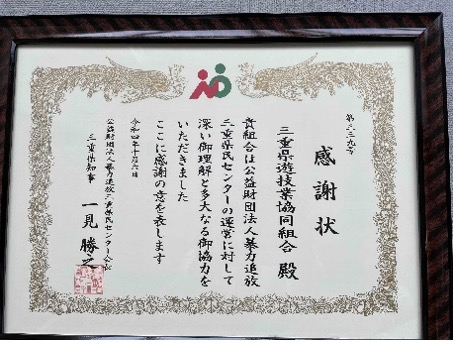 第三三九号
感謝状
三重県遊技業協同組合 殿
貴組合は公益財団法人暴力追放
三重県民センターの運営に対して
深い御理解と多大なる御協力を
いただきました
ここに感謝の意を表します
令和四年十月六日
公益財団法人暴力追放三重県民センター会長
三重県知事 一見 勝之